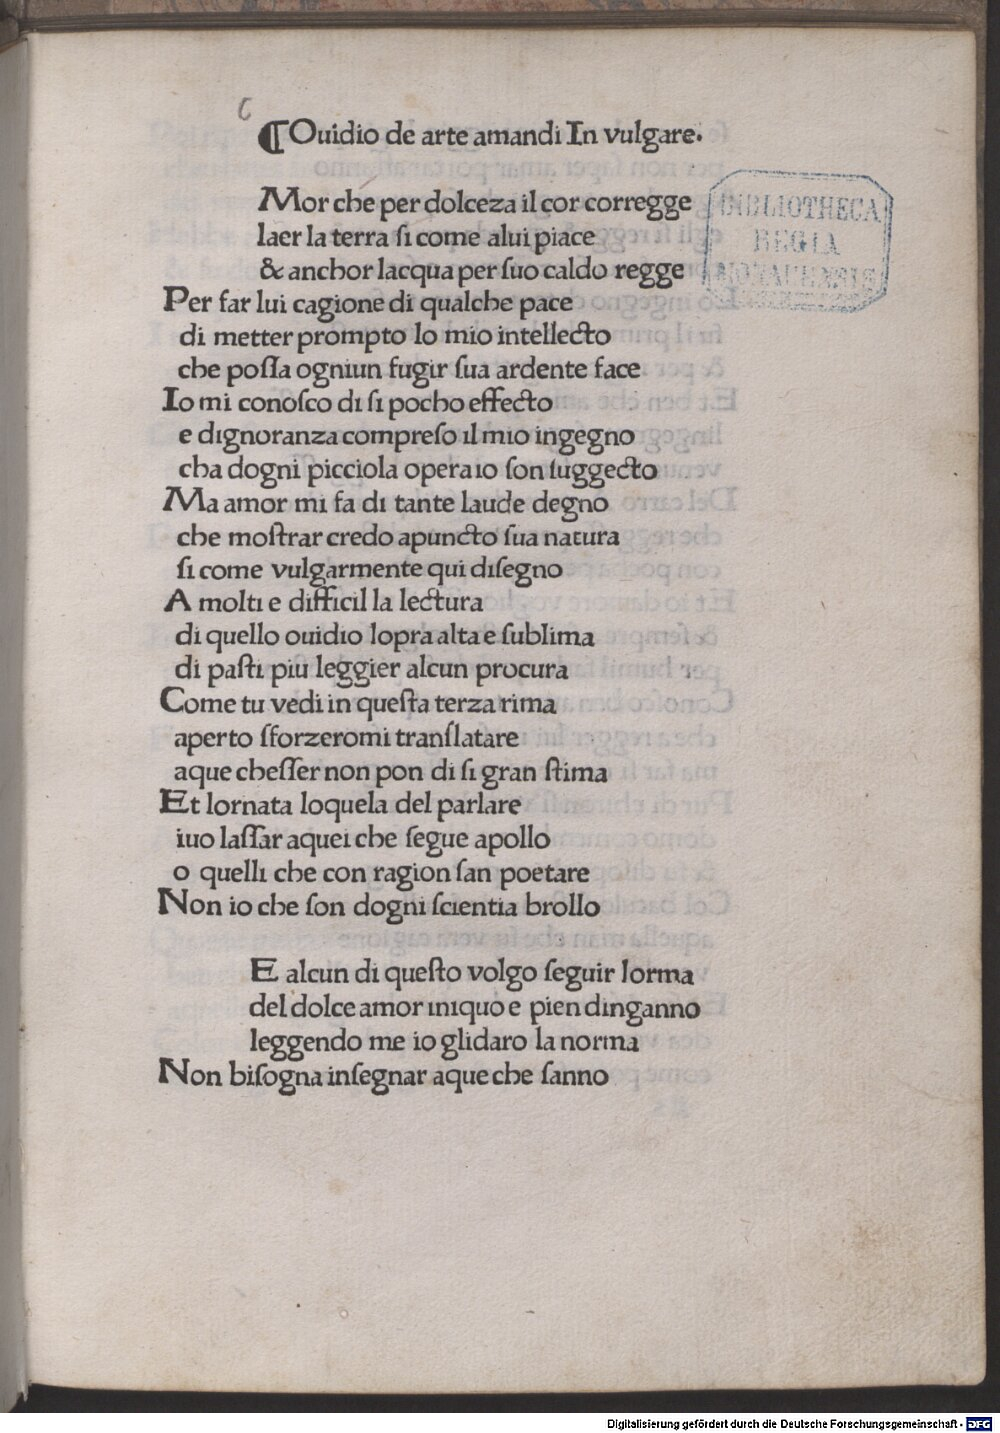 ¶Ouidio de arte amandi In vulgare.
Mor che per dolceza il cor corregge
laer la terra ſi come alui piace
& anchor lacqua per ſuo caldo regge
Per far lui cagione di qualche pace
di metter prompto lo mio intellecto
che poſſa ogniun fugir ſua ardente face
Io mi conoſco di ſi pocho effecto
e dignoranza compreſo il mio ingegno
cha dogni picciola opera io ſon ſuggecto
Ma amor mi fa di tante laude degno
che moſtrar credo apuncto ſua natura
ſi come vulgarmente qui diſegno
A molti e difficil la lectura
di quello ouidio lopra alta e ſublima
di paſti piu leggier alcun procura
Come tu vedi in queſta terza rima
aperto ſforzeromi tranſlatare
aque cheſſer non pon di ſi gran ſtima
Et lornata loquela del parlare
iuo laſſar aquei che ſegue apollo
o quelli che con ragion ſan poetare
Non io che ſon dogni ſcientia brollo
E alcun di queſto volgo ſeguir lorma
del dolce amor iniquo e pien dinganno
leggendo me io glidaro la norma
Non biſogna inſegnar aque che ſanno
BIBLIOTHECA
REGIA
MONACENSIS
Digitalisierung gefördert durch die Deutsche Forschungsgemeinschaft - DFG